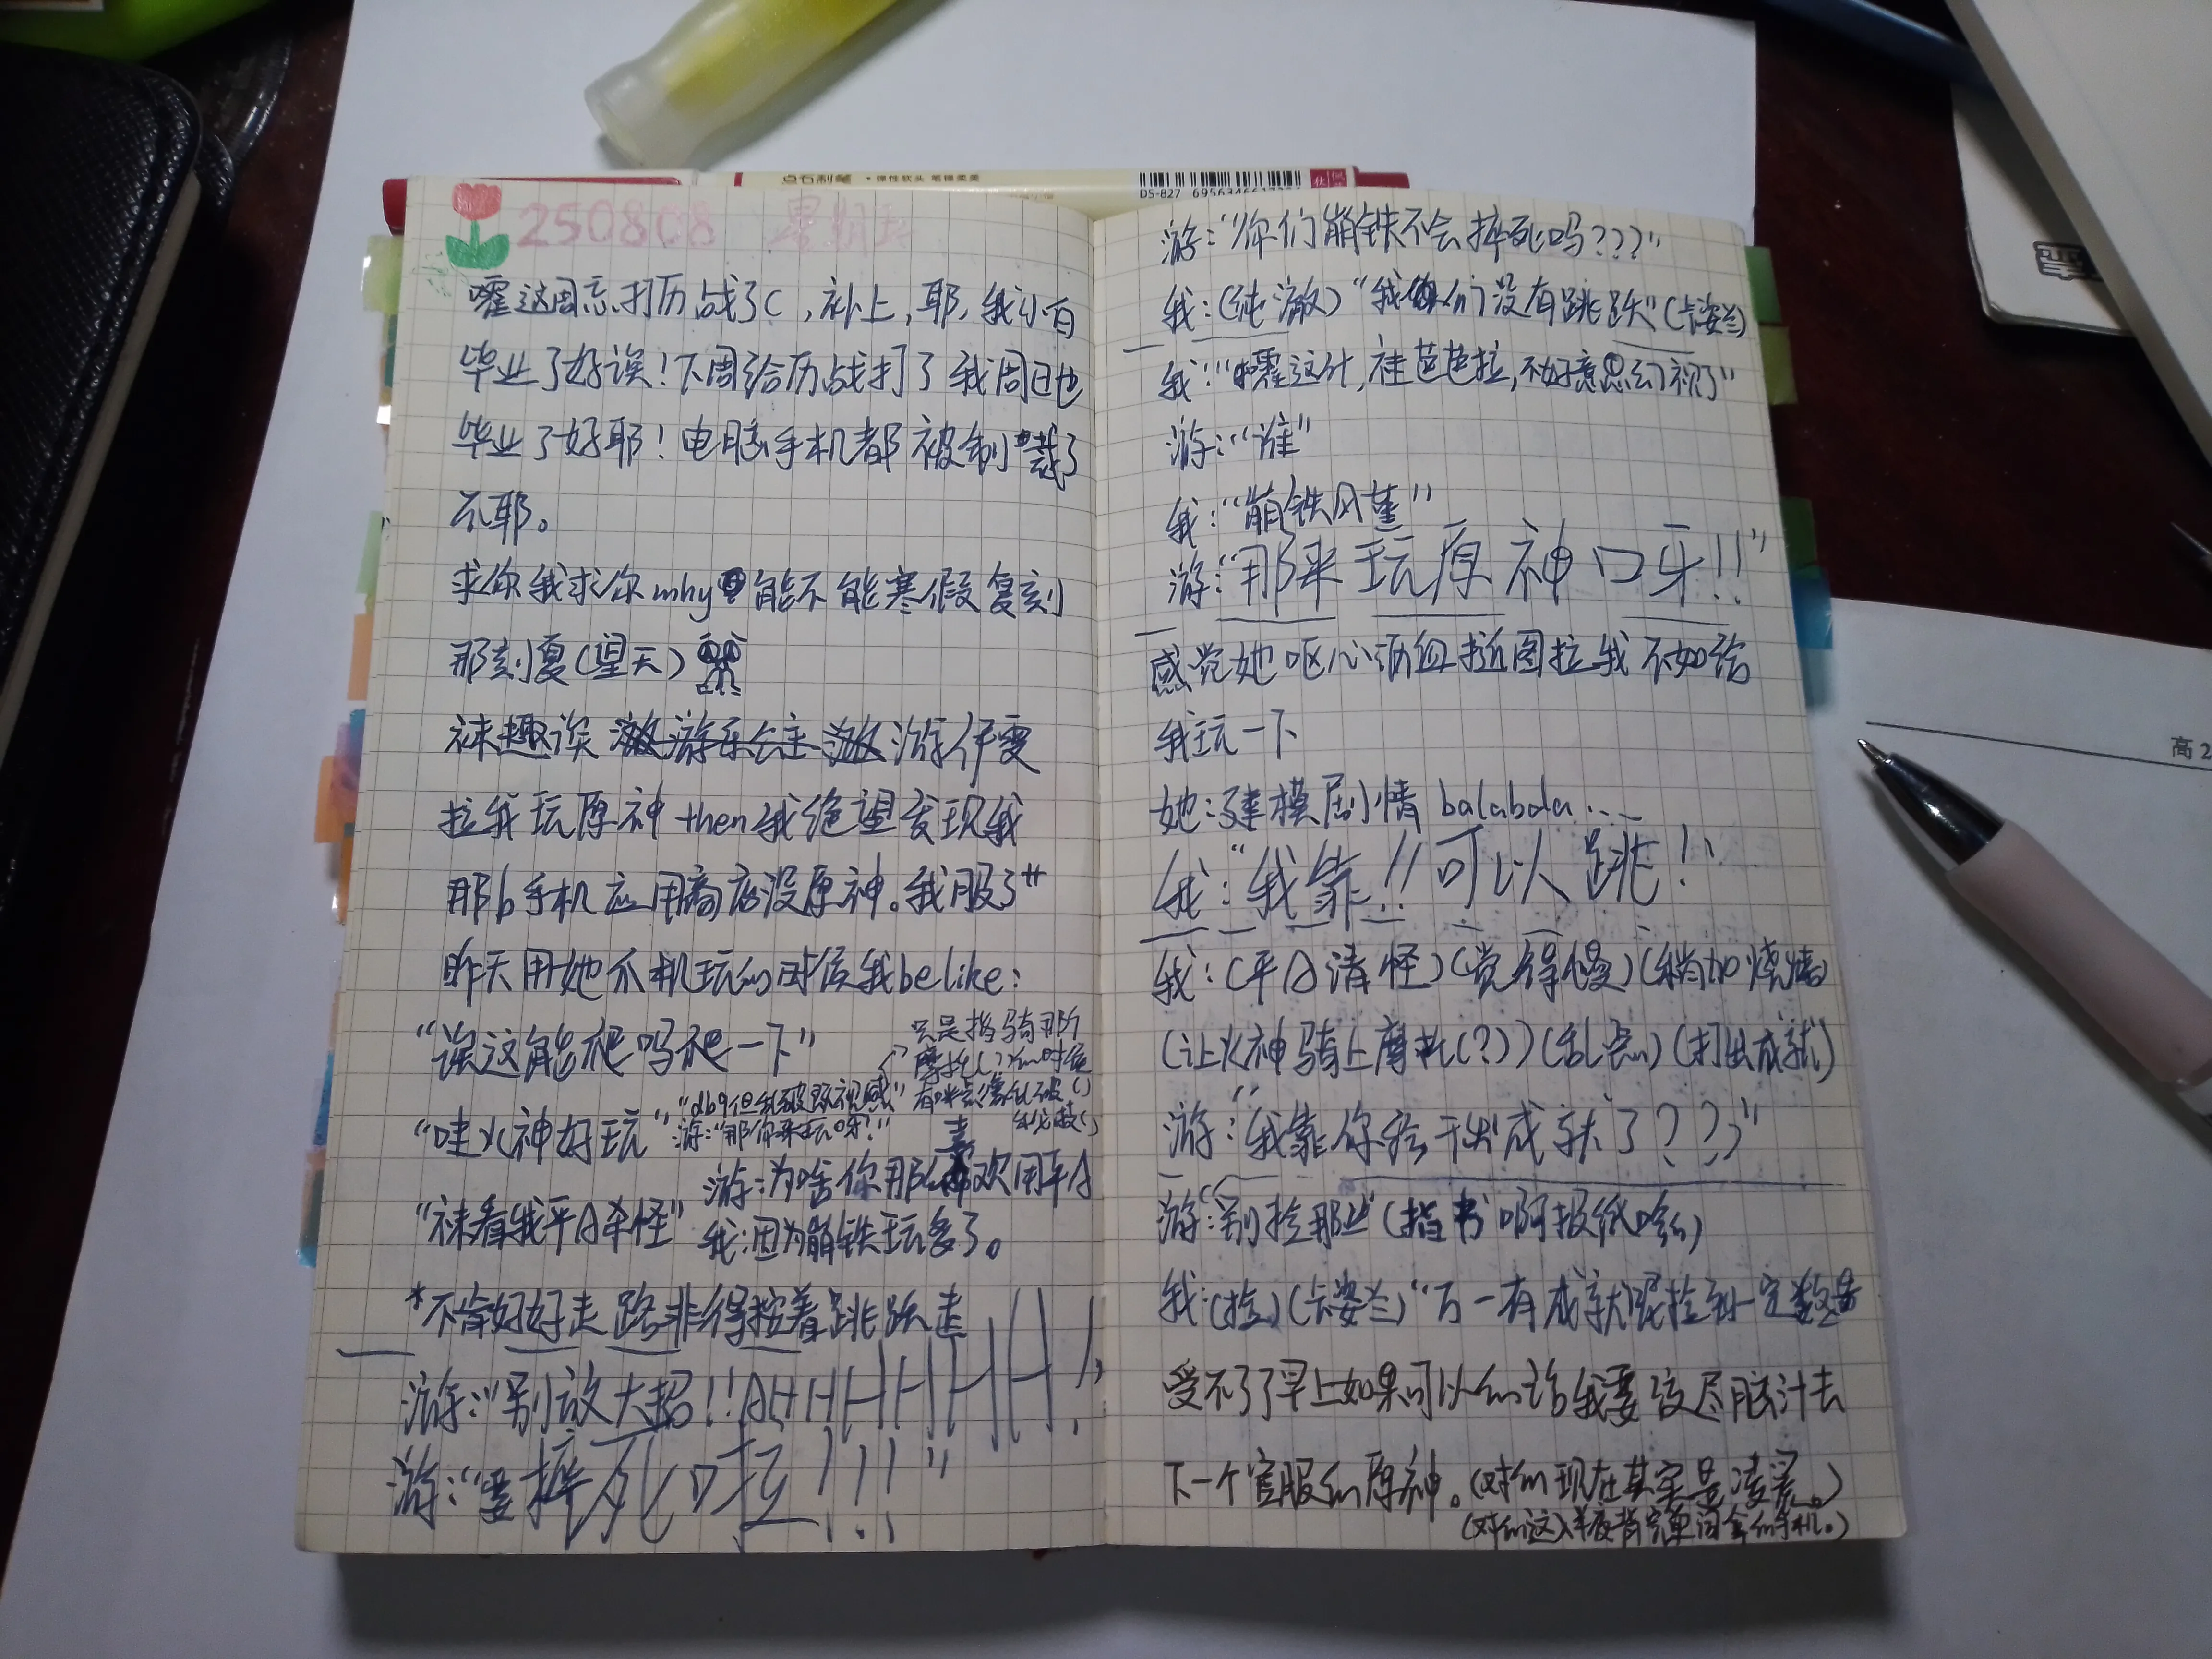 点石制笔 · 弹性软头 笔锋柔美
DS-827
250808 星期五
嚯这周忘打历战了(,补上,耶,我小白
毕业了好诶!下周给历战打了我周日也
毕业了好耶!电脑手机都被制裁了
不耶。
求你我求你mhy能不能寒假复刻
那刻夏(望天)
袜趣诶 游伊雯
拉我玩原神then我绝望发现我
那b手机应用商店没原神。我服了
昨天用她爪机玩的时候我belike:
“诶这能爬吗爬一下”
只是指骑那个
摩托(?)的时候
有时点像乱破()
“哇火神好玩”
“db9但乱破既视感”
游:“那你来玩呀!”
游:为啥你那么喜欢用平A
“袜看我平A杀怪”
我:因为崩铁玩多了。
*不肯好好走路非得按着跳跃走
游:“别放大招!!AHHHHHHH!
游:“要摔死啦!!!”
游:“你们崩铁不会摔死吗???”
我:(纯澈)“我们没有跳跃”(卡姿兰)
我:“嚯这什,哇芭芭拉,不好意思幻视了”
游:“谁”
我:“崩铁风堇”
游:“那来玩原神口牙!!”
感觉她呕心沥血拉我不如给
我玩一下
她:建模剧情balabala...
我:“我靠!!可以跳!”
我:(平A清怪)(觉得慢)(稍加烧烤)
(让火神骑上摩托(?))(乱点)(打出成就)
游:“我靠你给干出成就了???”
游:“别捡那些”(指书啊报纸啥的)
我:(捡)(卡姿兰)“万一有成就呢捡到一定数量
受不了早上如果可以的话我要绞尽脑汁去
下一个官服的原神。(对的现在其实是凌晨。)
高2